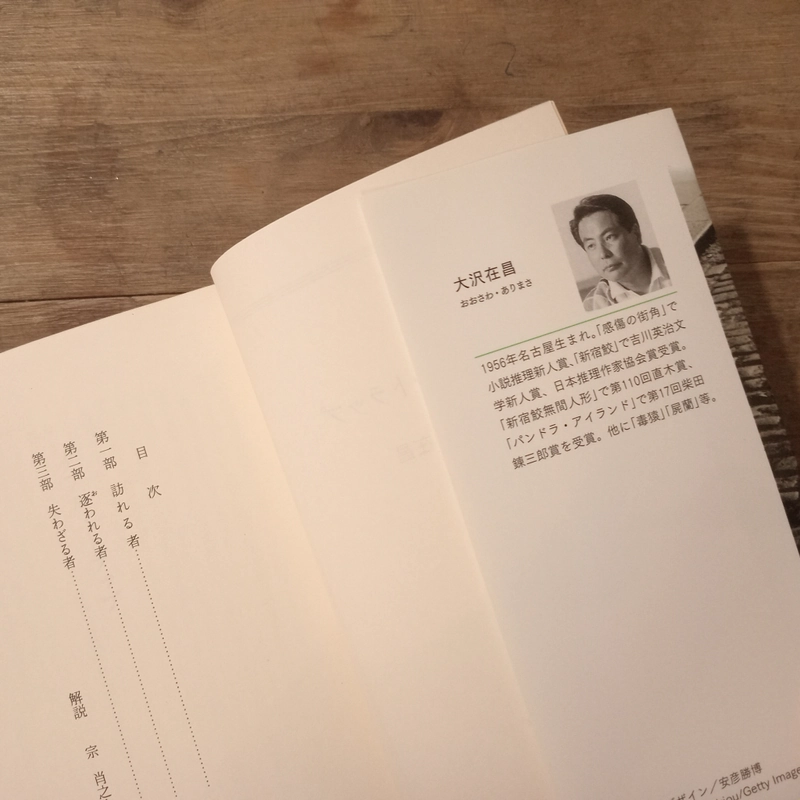 大沢在昌
おおさわ・ありまさ
1956年名古屋生まれ。「感傷の街角」で
小説推理新人賞、「新宿鮫」で吉川英治文
学新人賞、日本推理作家協会賞受賞。
「新宿鮫無間人形」で第110回直木賞、
「パンドラ・アイランド」で第17回柴田
錬三郎賞を受賞。他に「毒猿」「屍蘭」等。
目次
第一部 訪れる者
第二部 逐われる者
第三部 失わざる者
解説 宗 肖之
デザイン／安彦勝博
/Getty Image